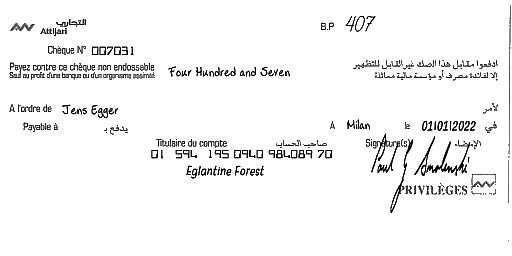 التجاري
Attijari
B.P 407
Chèque N° 007031
Payez contre ce chèque non endossable
Sauf au profit d'une banque ou d'un organisme assimilé
Four Hundred and Seven
ادفعوا مقابل هذا الصك غير القابل للتظهير
إلا لفائدة مصرف أو مؤسسة مالية مماثلة
A l'ordre de Jens Egger لأمر
Payable à يدفع بـ A Milan le 01/01/2022 في
Titulaire du compte صاحب الحساب Signature(s) الإمضاء
01 594 195 0940 984089 70
Eglantine Forest
PRIVILÈGES